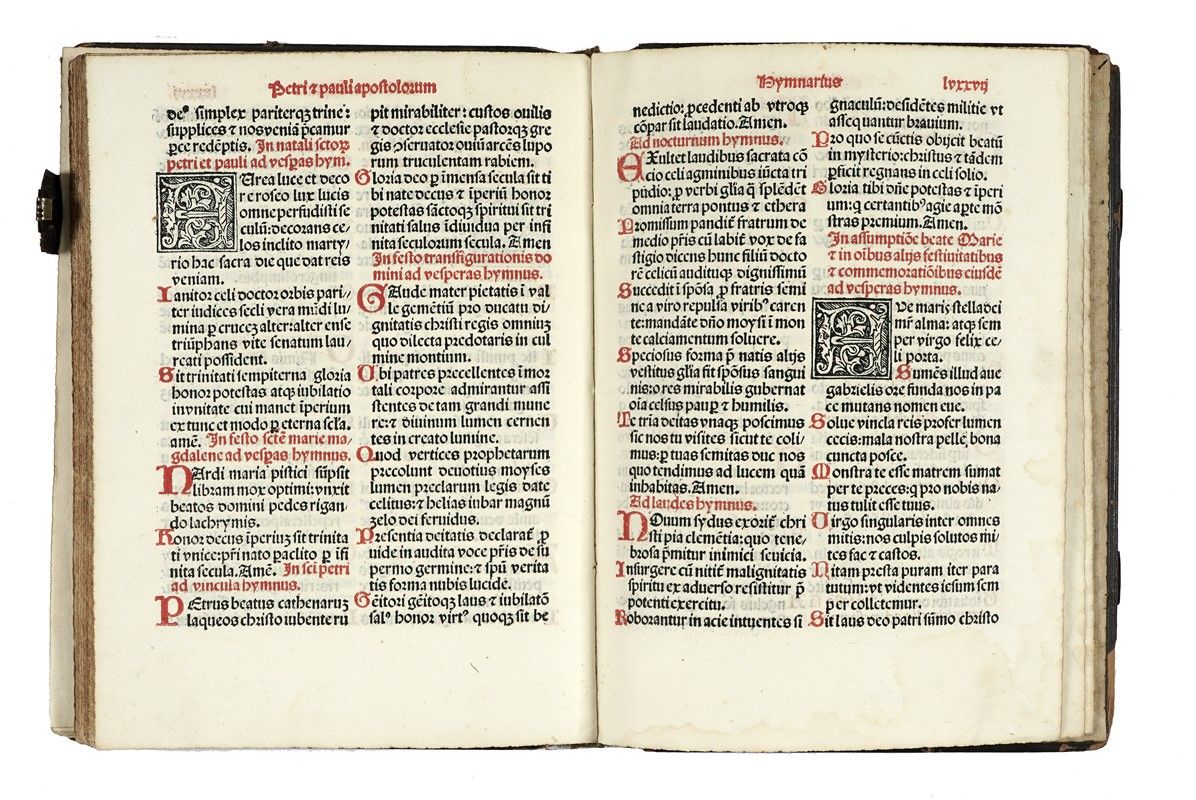 Petri ⁊ pauli apostolorum
deꝰ simplex pariterqꝫ trine:
supplices ⁊ nos venia p̄camur
ꝑce redēptis. In natali sctoꝝ
petri et pauli ad vesꝑas hym.
Aurea luce et deco
re roseo lux lucis
omne perfudisti se
culū: decorans ce-
los inclito marty-
rio hac sacra die que dat reis
veniam.
Ianitor celi doctor orbis pari-
ter iudices secli vera mūdi lu-
mina ꝑ crucez alter: alter ense
triūphans vite senatum lau-
reati possident.
Sit trinitati sempiterna gloria
honor potestas atqꝫ iubilatio
in vnitate cui manet īperium
ex tunc et modo ꝑ eterna secĺa.
amē. In festo sctē marie ma-
gdalene ad vesꝑas hymnus.
NArdi maria pistici sūpsit
libram mox optimi: vnxit
beatos domini pedes rigan-
do lachrymis.
Honor decus īperiuꝫ sit trinita
ti vnice: pr̄i nato paclito ꝑ īfi
nita secula. Amē. In sci petri
ad vincula hymnus.
PEtrus beatus cathenaruꝫ
laqueos christo iubente ru
pit mirabiliter: custos ouilis
⁊ doctor ecclesie pastorqꝫ gre
gis ꝯseruator ouiū arcēs lupo
rum truculentam rabiem.
Gloria deo ꝑ īmensa secula sit ti
bi nate decus ⁊ īperiū honor
potestas sāctoqꝫ spiritui sit tri
nitati salus īdiuidua per infi
nita seculorum secula. Amen
In festo transfigurationis do
mini ad vesperas hymnus.
GAude mater pietatis ī val
le gemētiū pro ducatu di-
gnitatis christi regis omniuꝫ
quo dilecta predotaris in cul
mine montium.
Ubi patres precellentes īmor
tali corpore admirantur assi
stentes de tam grandi mune
re: ⁊ diuinum lumen cernen
tes in creato lumine.
Quod vertices prophetarum
precolunt deuotius moyses
lumen preclarum legis date
celitus: ⁊ helias iubar magnū
zelo dei feruidus.
Presentia deitatis declarat̄ ꝓ
uide in audita voce pr̄is de su
permo germine: ⁊ spū verita
tis forma nubis lucide.
Gēitori gēitoqꝫ laus ⁊ iubilatō
salꝰ honor virtꝰ quoqꝫ sit be
Hymnarius lxxxvij
nedictio: ꝓcedenti ab vtroqꝫ
cōpar sit laudatio. Amen.
Ad nocturnum hymnus.
EXultet laudibus sacrata cō
cio celi agminibus iūcta tri
pudio: ꝓ verbi gĺia q̄ splēdēt
omnia terra pontus ⁊ ethera
Promissum pandit̄ fratrum de
medio pr̄is cū labit̄ vox de fa
stigio dicens hunc filiū docto
rē celicū audituqꝫ dignissimū
Succedit ī spōsa ꝓ fratris semi
ne a viro repulsa viribꝰ caren
te: mandāte dn̄o moysi ī mon
te calciamentum soluere.
Speciosus forma p̄ natis alijs
vestitus gĺia fit spōsus sangui
nis: o res mirabilis gubernat
oīa celsus pauꝑ ⁊ humilis.
Te tria deitas vnaqꝫ poscimus
sic nos tu visites sicut te coli-
mus: ꝑ tuas semitas duc nos
quo tendimus ad lucem quā
inhabitas. Amen.
Ad laudes hymnus.
NOuum sydus exorit̄ chri
sti pia clemētia: quo tene-
brosa p̄mitur inimici seuicia.
Insurgere cū nitit̄ malignitatis
spiritu ex aduerso resistitur p̄
potenti exercitu.
Roborantur in acie intuentes si
gnaculū: desidētes militie vt
assequantur brauium.
Pro quo se cūctis obijcit beatū
in mysterio: christus ⁊ tādem
ꝑficit regnans in celi solio.
Gloria tibi dn̄e potestas ⁊ īperi
um: q̄ certantibꝰ agie aꝑte mō
stras premium. Amen.
In assumptiōe beate Marie
⁊ in oībus alijs festiuitatibus
⁊ commemoratiōibus eiusdē
ad vesperas hymnus.
AUe maris stella dei
mr̄ alma: atqꝫ sem
per virgo felix ce-
li porta.
Sumēs illud aue
gabrielis ore funda nos in pa
ce mutans nomen eue.
Solue vincla reis profer lumen
cecis: mala nostra pelle, bona
cuncta posce.
Monstra te esse matrem sumat
per te preces: q̄ pro nobis na-
tus tulit esse tuus.
Uirgo singularis inter omnes
mitis: nos culpis solutos mi-
tes fac ⁊ castos.
Uitam presta puram iter para
tutum: vt videntes iesum sem
per colletemur.
Sit laus deo patri sūmo christo